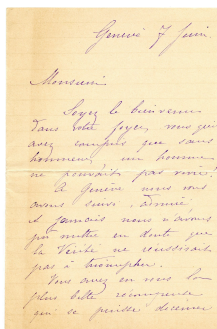 Genève 7 Juin
Monsieur
Soyez le bienvenu
dans votre foyer, vous qui
avez compris que sans
honneur, un homme
ne pouvait pas vivre!
A Genève nous vous
avons suivi, admiré,
et jamais nous n'avons
pu mettre en doute que
la Vérité ne réussirait
pas à triompher.
Vous avez en vous la
plus belle récompense
qui se puisse décerner